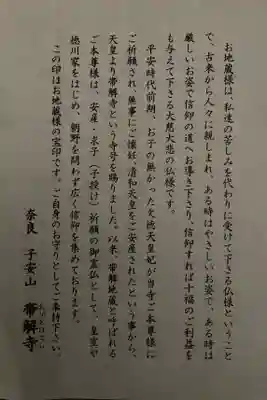 お地蔵様は、私達の苦しみを代わりに受けて下さる仏様ということ
で、古来から人々に親しまれ、ある時はやさしいお姿で、ある時は
厳しいお姿で信仰の道へお導き下さり、信仰すれば十福のご利益を
も与えて下さる大慈大悲の仏様です。
平安時代前期、お子の無かった文徳天皇妃が当寺ご本尊様に
ご祈願され、無事にご懐妊、清和天皇をご安産されたという事から、
天皇より帯解寺という寺号を賜りました。以来、帯解地蔵と呼ばれる
ご本尊様は、安産・求子(子授け)祈願の御霊仏として、皇室や
徳川家をはじめ、朝野を問わず広く信仰を集めております。
この印はお地蔵様の宝印です。ご自身のお守りとしてご奉持下さい。
奈良 子安山 帯解寺